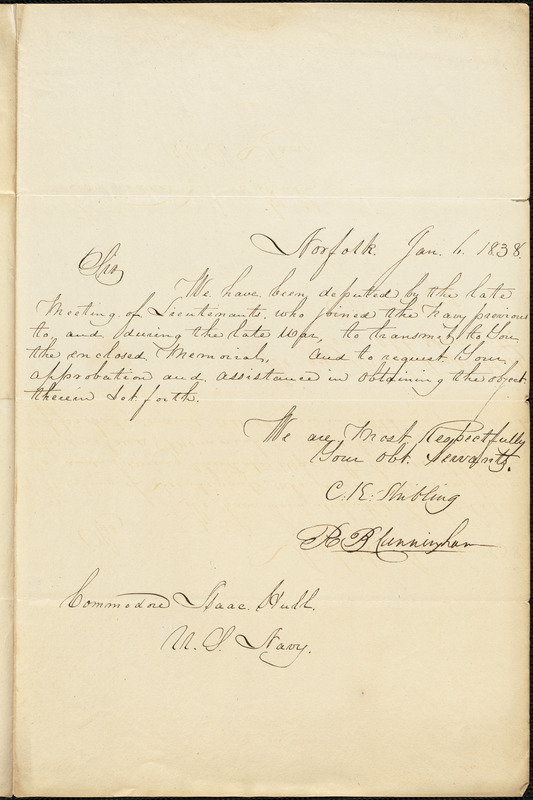 Norfolk Jan. 6. 1838.
Sir
We have been deputed by the late
Meeting of Lieutenants who joined the Navy previous
to, and during the late War, to transmit to You
the enclosed Memorial, And to request Your
approbation and assistance in obtaining the object
therein Set forth.
We are Most Respectfully
Your Obt. Servants.
C. K. Stribling
R B Cunningham
Commodore Isaac Hull.
U. S. Navy.